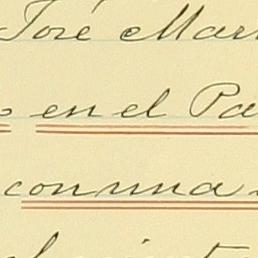 José Mar
en el Pa
con una